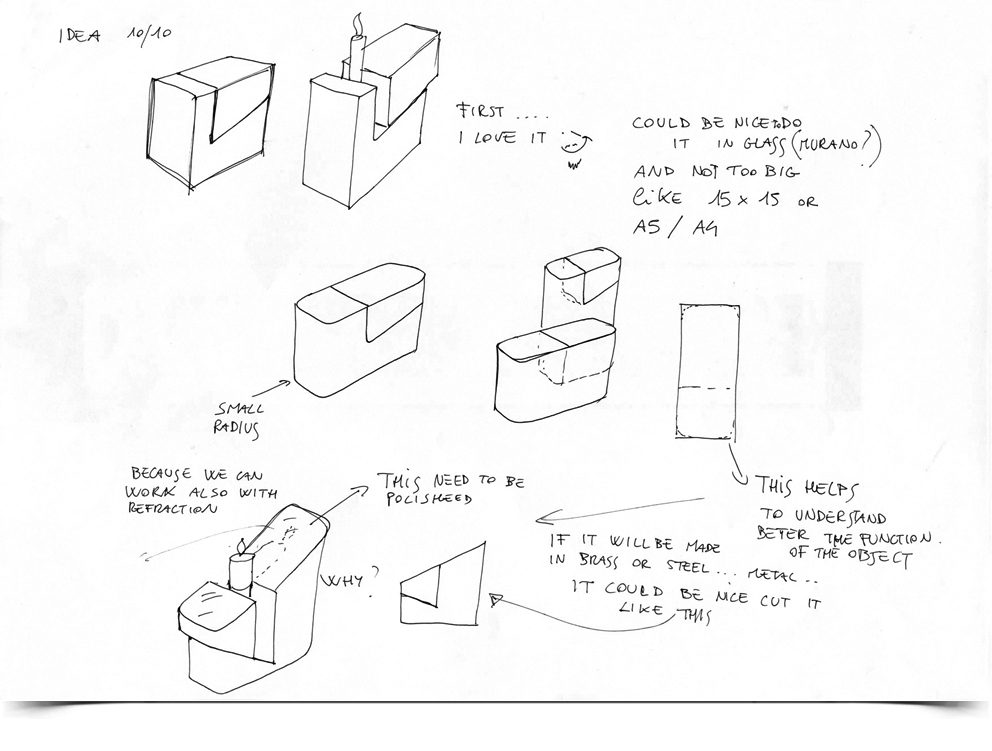 IDEA 10/10
FIRST ....
I LOVE IT
COULD BE NICE TO DO
IT IN GLASS (MURANO?)
AND NOT TOO BIG
LIKE 15 x 15 OR
A5 / A4
SMALL
RADIUS
BECAUSE WE CAN
WORK ALSO WITH
REFRACTION
THIS NEED TO BE
POLISHEED
WHY?
THIS HELPS
TO UNDERSTAND
BETER THE FUNCTION.
OF THE OBJECT
IF IT WILL BE MADE
IN BRASS OR STEEL... METAL..
IT COULD BE NICE CUT IT
LIKE THIS